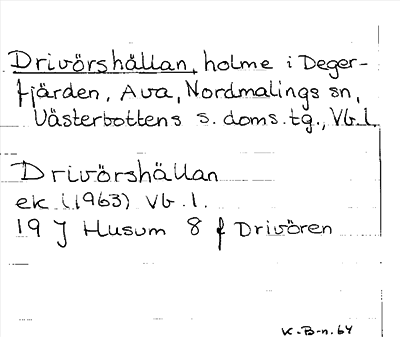 Drivörshällan, holme i Deger-
fjärden, Ava, Nordmalings sn,
Västerbottens s. doms.tg., Vb.l.
Drivörshällan
ek. (1963) Vb. l.
19 J Husum 8 f Drivören
K-B-n. 64